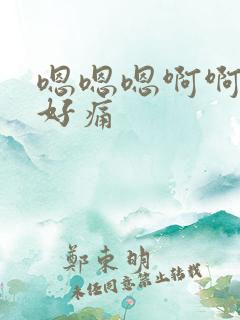 嗯嗯嗯啊啊
好痛
鄭東明
未经同意禁止转载